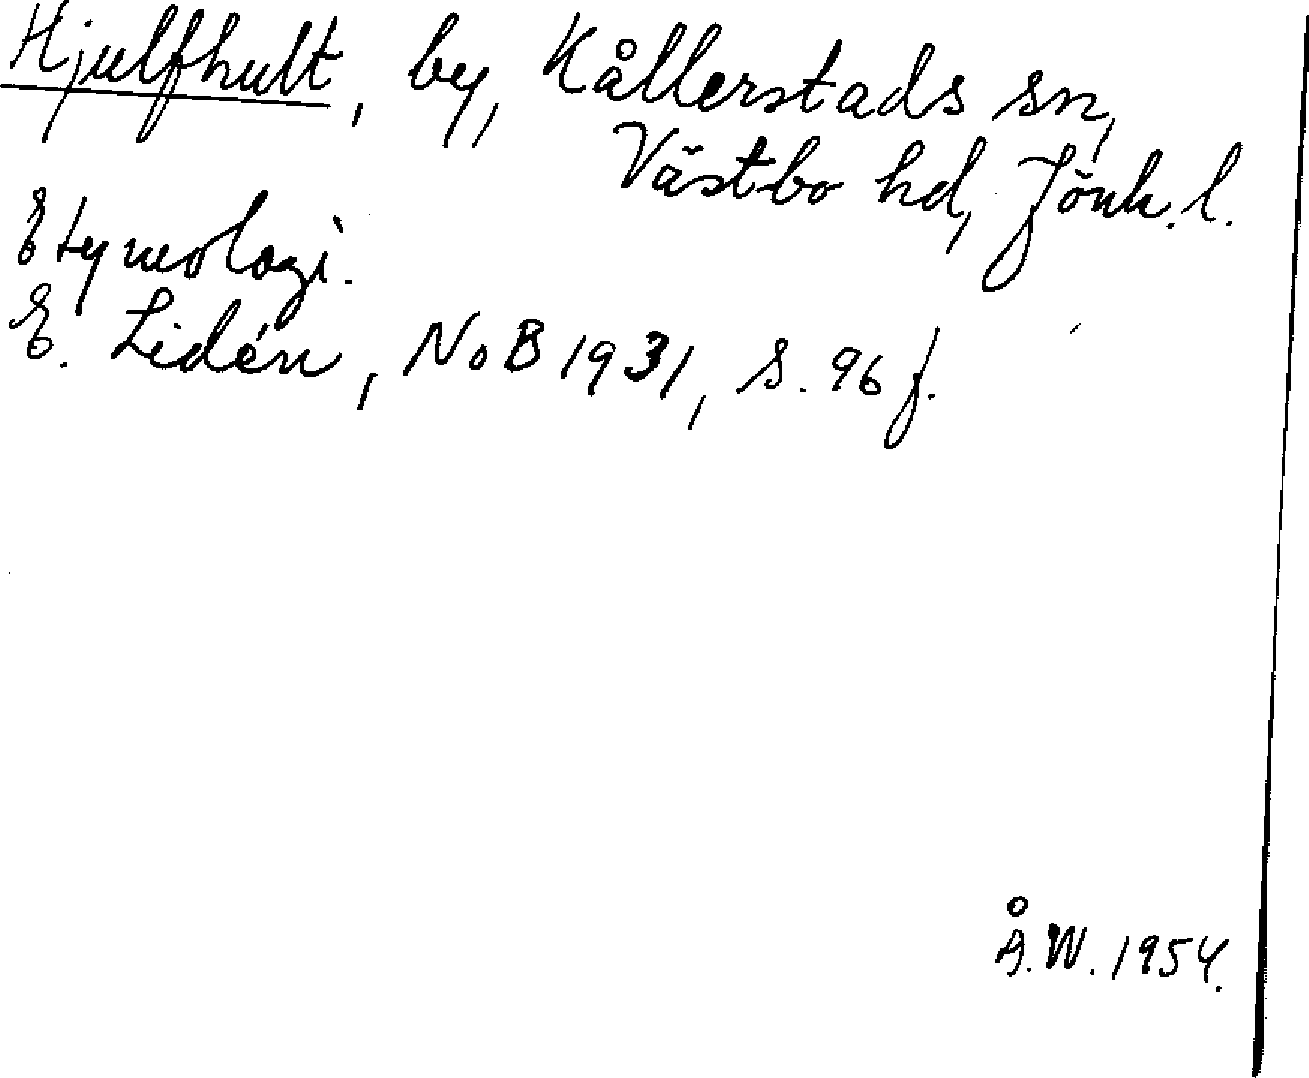 Hjulfhult, by, Kållerstads sn,
Västbo hd, Jönk. l.
Etymologi.
E. Lidén, NoB 1931, s. 96 f.
Å.W. 1954.